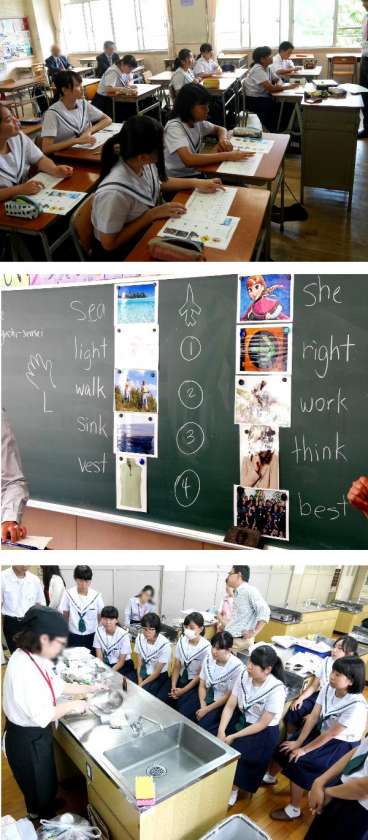 sea
she
light
1
right
walk
2
work
L
sink
3
think
vest
4
best